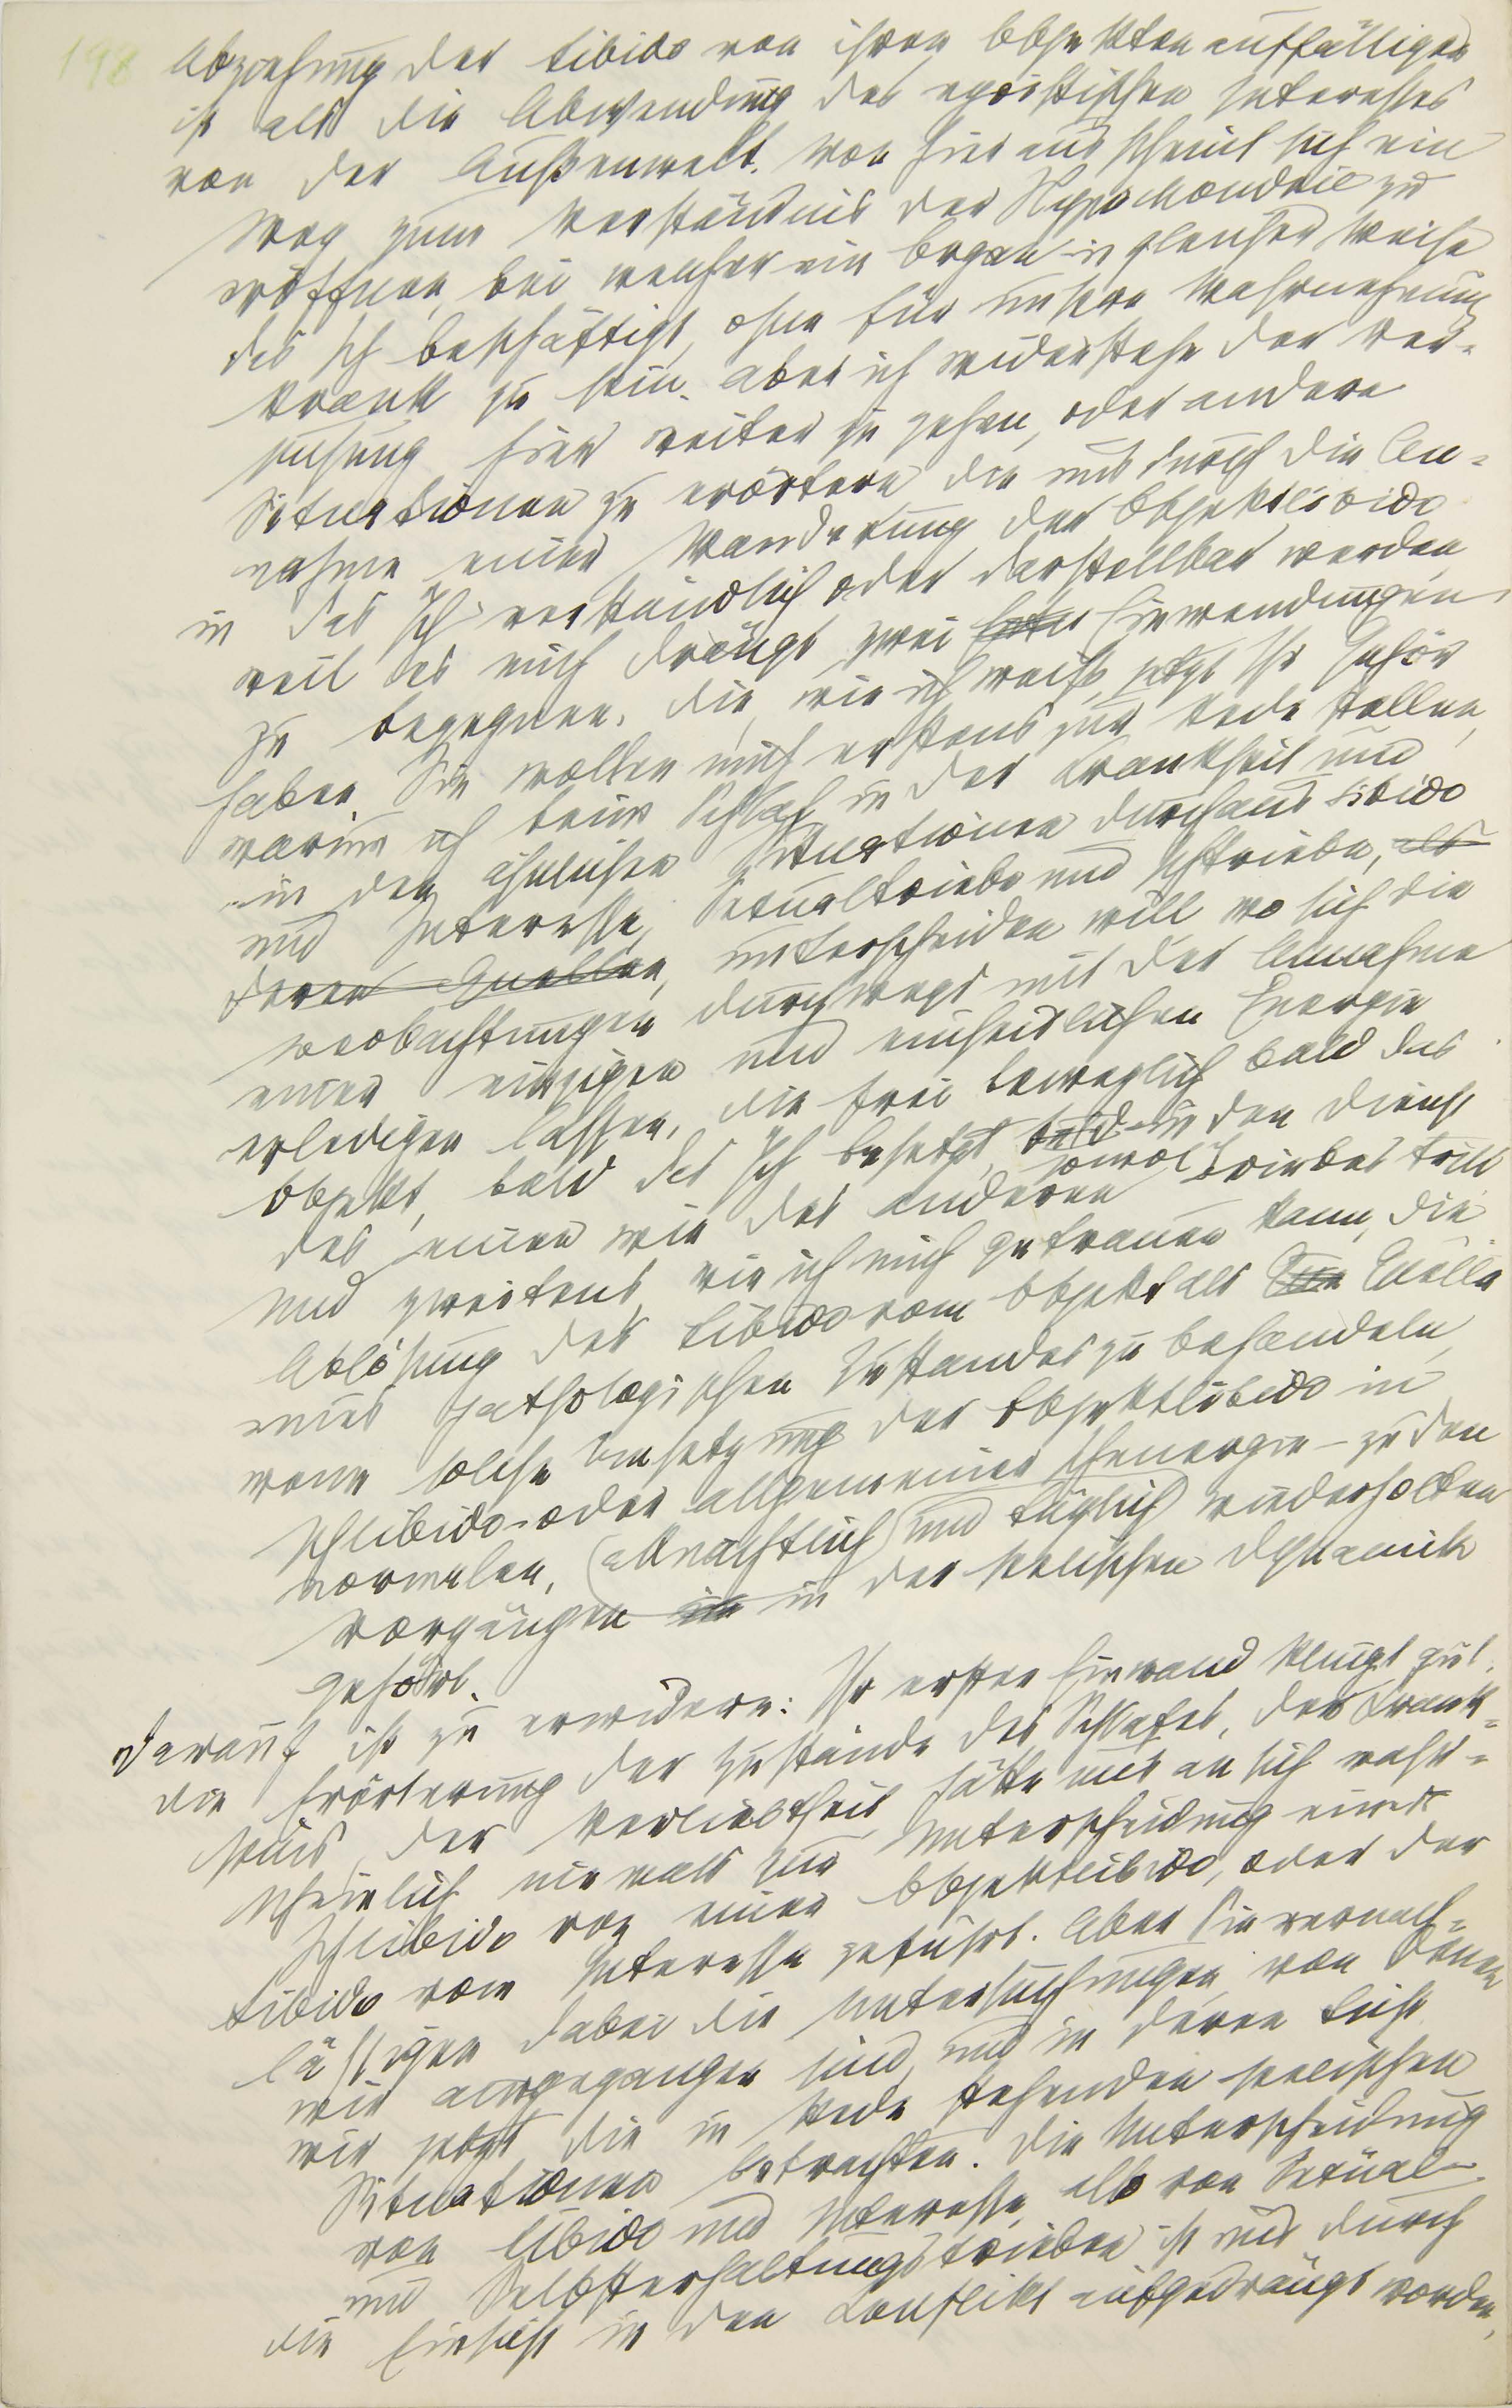 198
Abziehung der Libido von ihren Objekten auffälliger
ist als die Abwendung des egoistischen Interesses
von der Außenwelt. Von hier aus scheint sich ein
Weg zum Verständnis der Hypochondrie zu
eröffnen, bei welcher ein Organ in gleicher Weise
das Ich beschäftigt, ohne für unsere Wahrnehmung
krank zu sein. Aber ich widerstehe der Ver-
suchung hier weiter zu gehen, oder andere
Situationen zu erörtern die uns durch die An-
nahme einer Wanderung der Objektlibido
in das Ich verständlich oder darstellbar werden,
weil es mich drängt zwei Einwendungen
zu begegnen, die, wie ich weiß, jetzt Ihr Gehör
haben. Sie wollen mich erstens zur Rede stellen,
warum ich beim Schlaf in der Krankheit und
in den ähnlichen Situationen durchaus Libido
und Interesse, Sexualtriebe und Ichtriebe, als
deren Quellen, unterscheiden will wo sich die
Beobachtungen durchwegs mit der Annahme
einer einzigen und einheitlichen Energie
erledigen lassen, die frei beweglich bald das
Objekt, bald das Ich besetzt, bald in den Dienst
des einen wie des anderen Triebes tritt
Und zweitens, wie ich mich getrauen kann, die
Ablösung der Libido vom Objekt als Quelle
eines pathologischen Zustandes zu behandeln,
wenn solche Umsetzung der Objektlibido in
Ichlibido – oder allgemeiner Ichenergie – zu den
normalen, (allnächtlich) und täglich wiederholten
Vorgängen in der seelischen Dynamik
gehört.
Darauf ist zu erwidern: Ihr erster Einwand klingt gut.
Die Erörterung der Zustände des Schlafes, des Krank-
seins, der Verliebtheit hätte uns an sich wahr-
scheinlich niemals zur Unterscheidung einer
Ichlibido von einer Objektlibido, oder der
Libido vom Interesse geführt. Aber Sie vernach-
lässigen dabei die Untersuchungen, von denen
wir ausgegangen sind, und in deren Licht
wir jetzt die in Rede stehenden seelischen
Situationen betrachten. Die Unterscheidung
von Libido und Interesse, also von Sexual-
und Selbsterhaltungstrieben ist uns durch
die Einsicht in den Konflikt aufgedrängt worden,